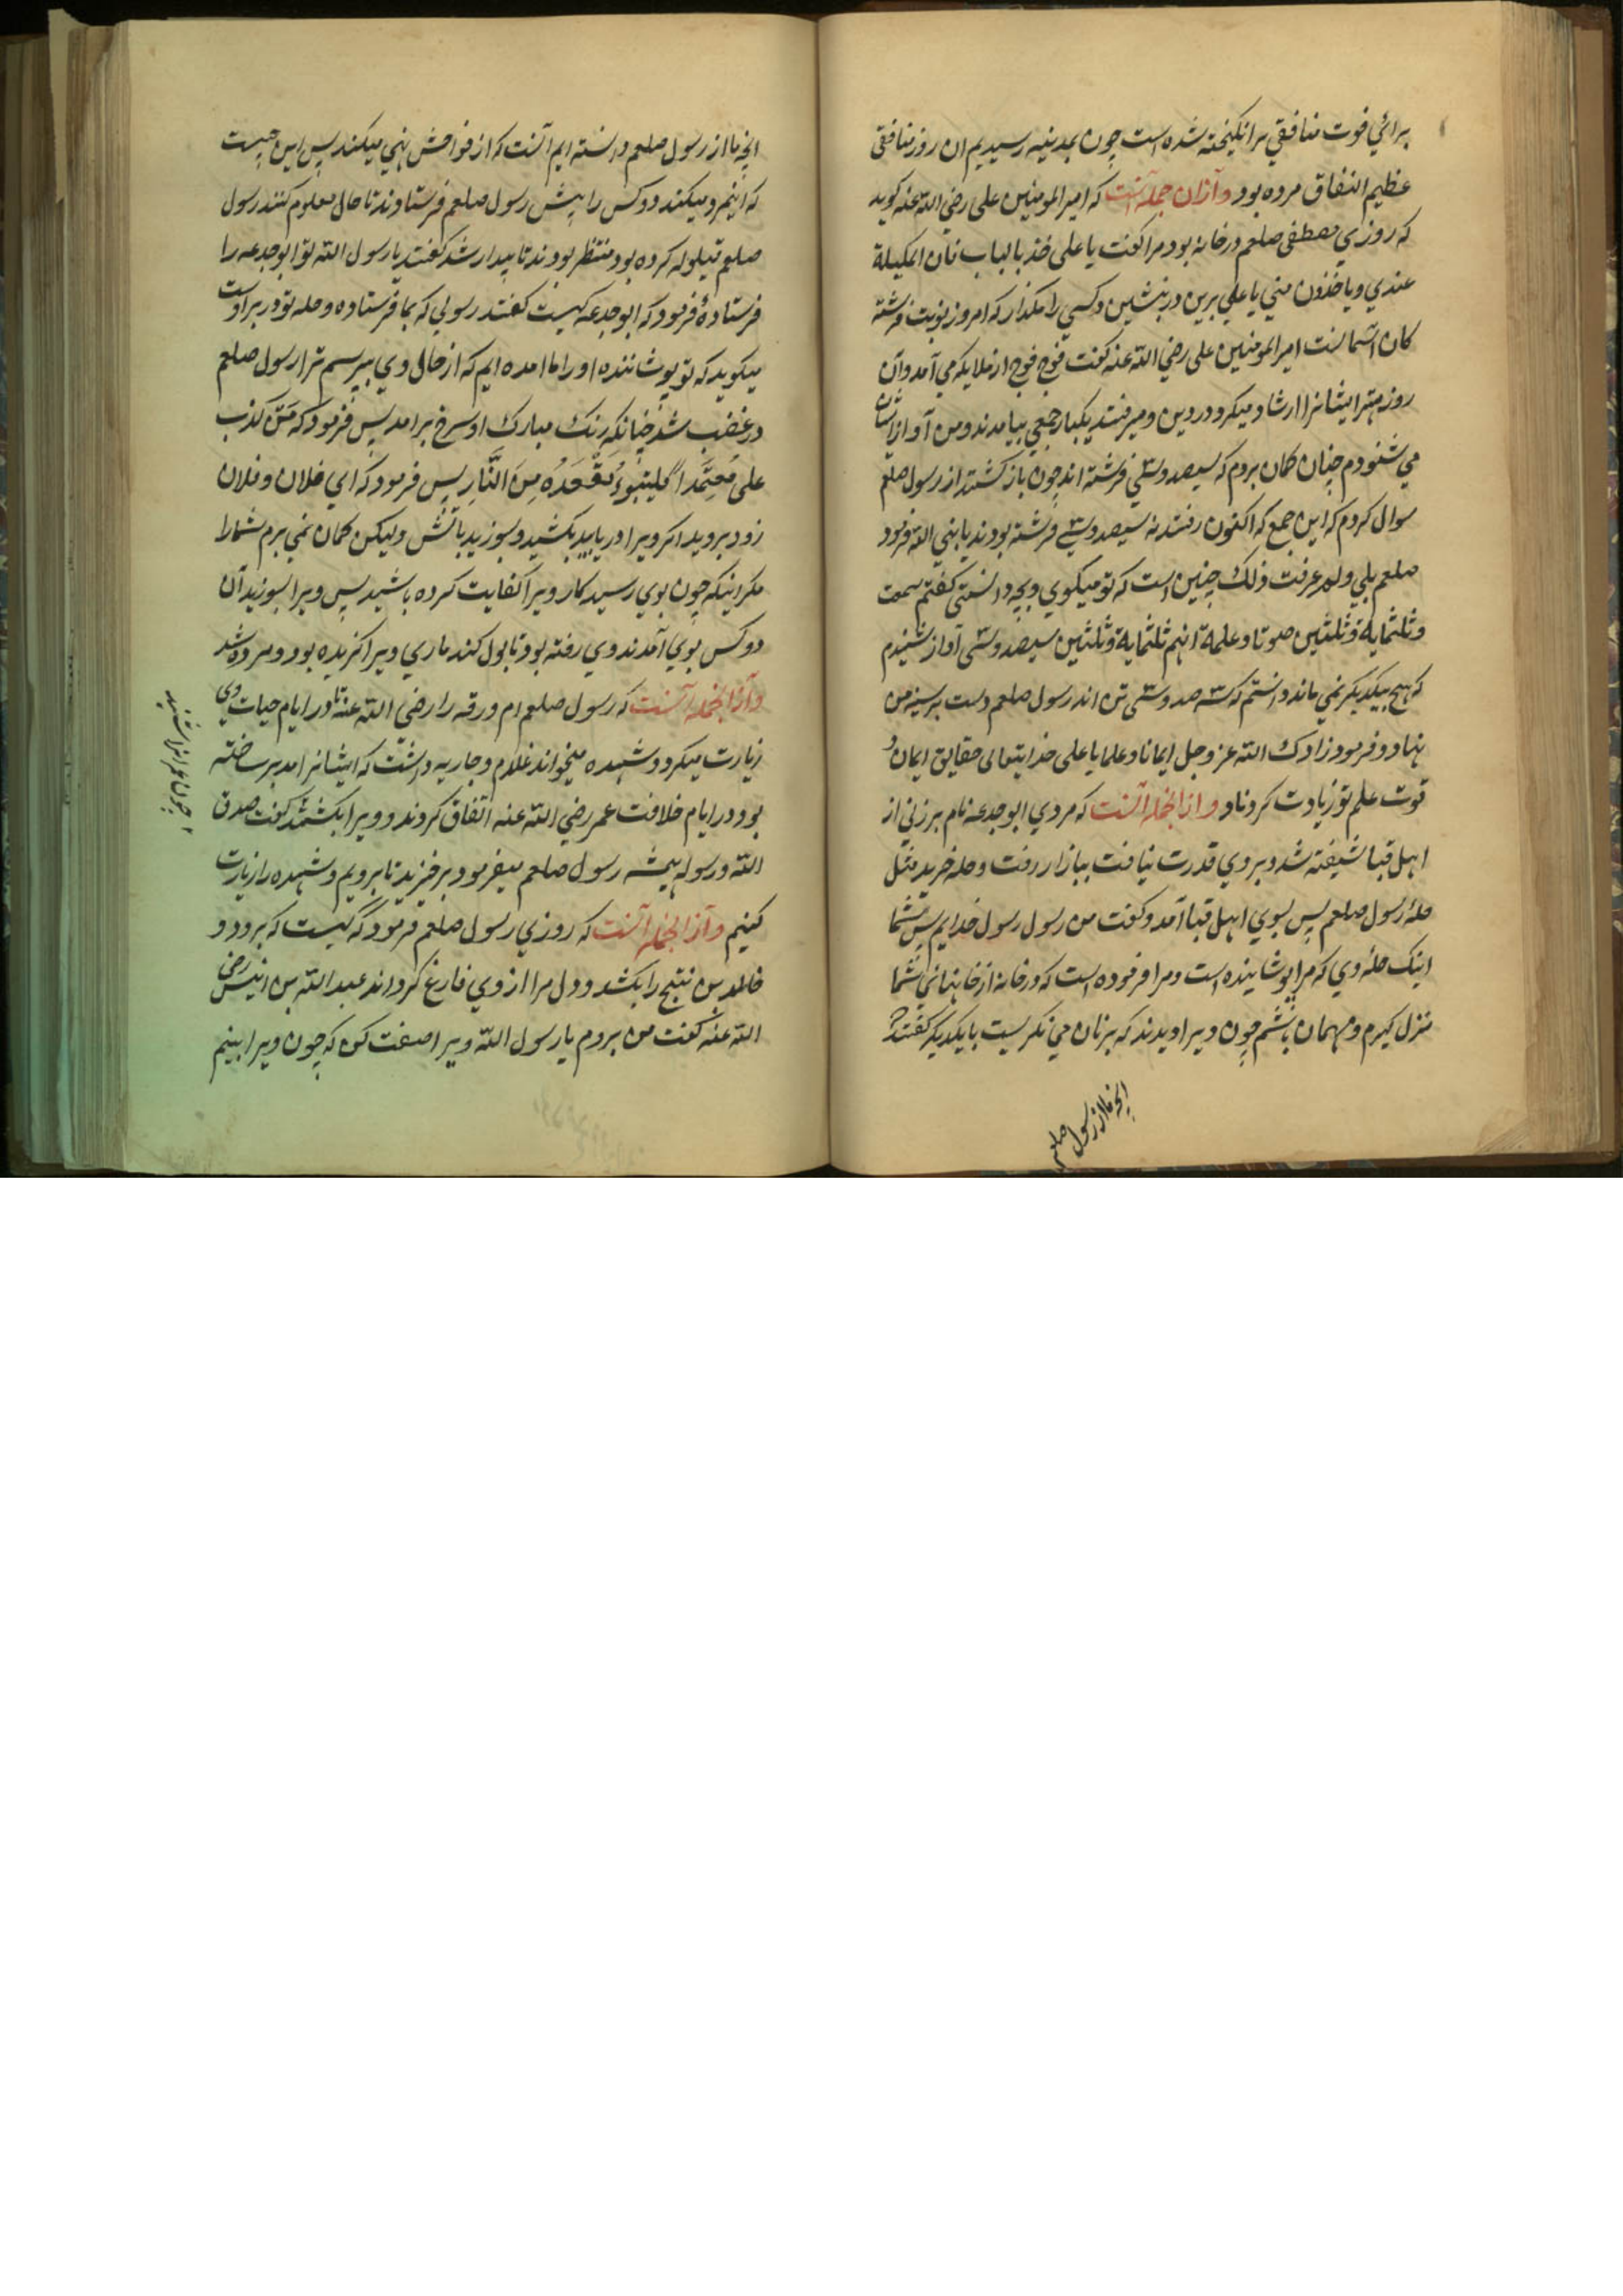 برائي فوت منافقي برانكيخته شده است چون بمدينه رسيديم ان روز منافقى
عظيم النفاق مرده بود وآزان جمله آنست كه امير المومنين على رضي الله عنه كويد
كه روزي مصطفى صلعم در خانه بود مرا كفت يا على خذ بالباب فان الملايكة
عندي وياخذون مني يا علي برين در بنشين وكسي را مكذار كه امروز نوبت فرشته
كان آسمانست امير المومنين على رضي الله عنه كفت فوج فوج از ملايكه مي آمد وآن
روز مهتر ايشانرا ارشاد ميكرد در دين وميرفتند يكبار جمعي بيامدند ومن آواز ايشان
مي شنودم چنان كمان بردم كه سيصد وسي فرشته اند چون باز كشتند از رسول صلعم
سوال كردم كه اين جمع كه اكنون رفتند نه سيصد وسي فرشته بودند يا نبي الله فرمود
صلعم بلي ولم عرفت ذلك چنين است كه تو ميكوي وبچه دانستي كفتم سمعت
وثلثماية وثلثين صوتا وعلمت انهم ثلثماية وثلثين سيصد وسي آواز شنيدم
كه هيچ بيكديكر نمي ماند دانستم كه سه صد وسي تن اند رسول صلعم دست بر سينه من
نهاد وفرمود زادك الله عز وجل ايمانا وعلما يا على خدايتعالى حقايق ايمان و
قوت علم تو زيادت كرداناد وازانجمله آنست كه مردي ابو جدعه نام بر زني از
اهل قبا شيفته شد وبروي قدرت نيافت ببازار رفت وحله خريد مثل
حلهٔ رسول صلعم پس بسوي اهل قبا آمد وكفت من رسول رسول خدايم پيش شما
اينك حلهٔ وي كه مرا پوشانيده است ومرا فرموده است كه در خانه از خانهائي شما
منزل كيرم ومهمان باشم چون ويرا ديدند كه بزنان مي نكريست با يكديكر كفتند
انچه ما از رسول صلعم
انچه ما از رسول صلعم دانسته ايم آنست كه از فواحش نهي ميكند پس اين چيست
كه اينمرد ميكند دو كس را پيش رسول صلعم فرستادند تا حال معلوم كنند رسول
صلعم قيلوله كرده بود منتظر بودند تا بيدار شد كفتند يا رسول الله تو ابو جدعه را
فرستادهٔ فرمود كه ابو جدعه كيست كفتند رسولي كه بما فرستاده وحله تو در بر اوست
ميكويد كه تو پوشاننده او را ما امده ايم كه از حال وي بپرسيم ترا رسول صلعم
در غضب شد چنانكه رنك مبارك او سرخ برامد پس فرمود كه مَن كذب
على مُعتمِّدا فليتبوءُ مقْعَدُه مِنَ النَّارِ پس فرمود كه اي فلان وفلان
زود برويد اكر ويرا دريابيد بكشيد وبسوزيد باتش وليكن كمان نمي برم شمارا
مكر اينكه چون بوي رسيد كار ويرا كفايت كرده باشيد پس ويرا بسوزيد آن
دو كس بوي آمدند وي رفته بود تا بول كند ماري ويرا كزيده بود ومرده شد
وآزانجمله آنست كه رسول صلعم ام ورقه را رضي الله عنها در ايام حيات وي
زيارت ميكرد وشهيده ميخواند غلام وجاريه داشت كه ايشانرا مدبر ساخته
بود در ايام خلافت عمر رضي الله عنه اتفاق كردند و ويرا بكشتند كفت صدق
الله ورسوله هميشه رسول صلعم ميفرمود برخيزيد تا برويم وشهيده را زيارت
كنيم وآزانجمله آنست كه روزي رسول صلعم فرمود كه كيست كه برود و
خالد بن نتيج را بكشد ودل مرا از وي فارغ كرداند عبد الله بن انيس رضي
الله عنه كفت من بروم يا رسول الله ويرا صفت كن كه چون ويرا بينم